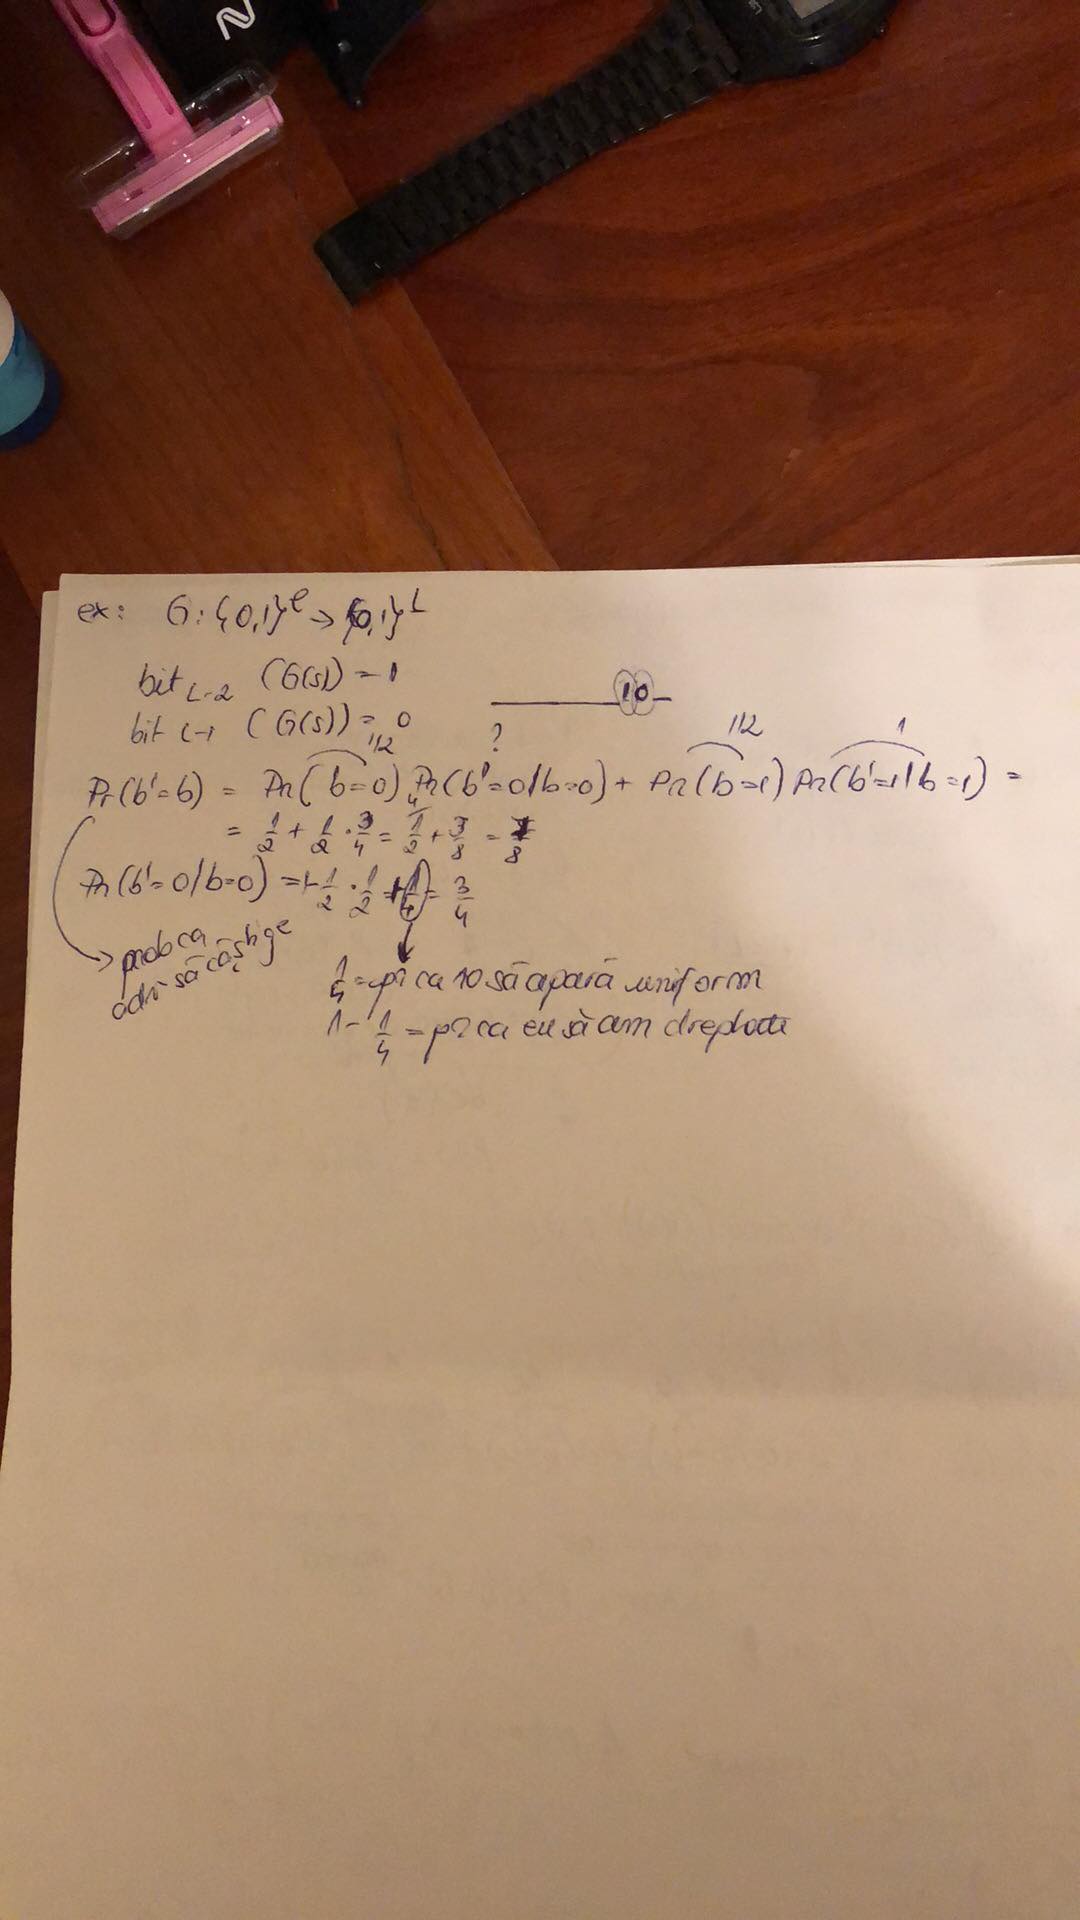 ex: G: {0,1}^l → {0,1}^L
bit L-2 (G(s)) = 1
10
bit L-1 (G(s)) = 0
?
1/2 1/2 1
Pr(b'=b) = Pr(b=0) Pr(b'=0/b=0) + Pr(b=1) Pr(b'=1/b=1) =
= 1/2 + 1/2 · 3/4 = 4/8 + 3/8 = 7/8
Pr(b'=0/b=0) = 1 - 1/2 · 1/2 1/4 = 3/4
→ prob ca
adv să câștige
1/4 = pr ca 10 să apară uniform
1 - 1/4 = pr ca eu să am dreptate